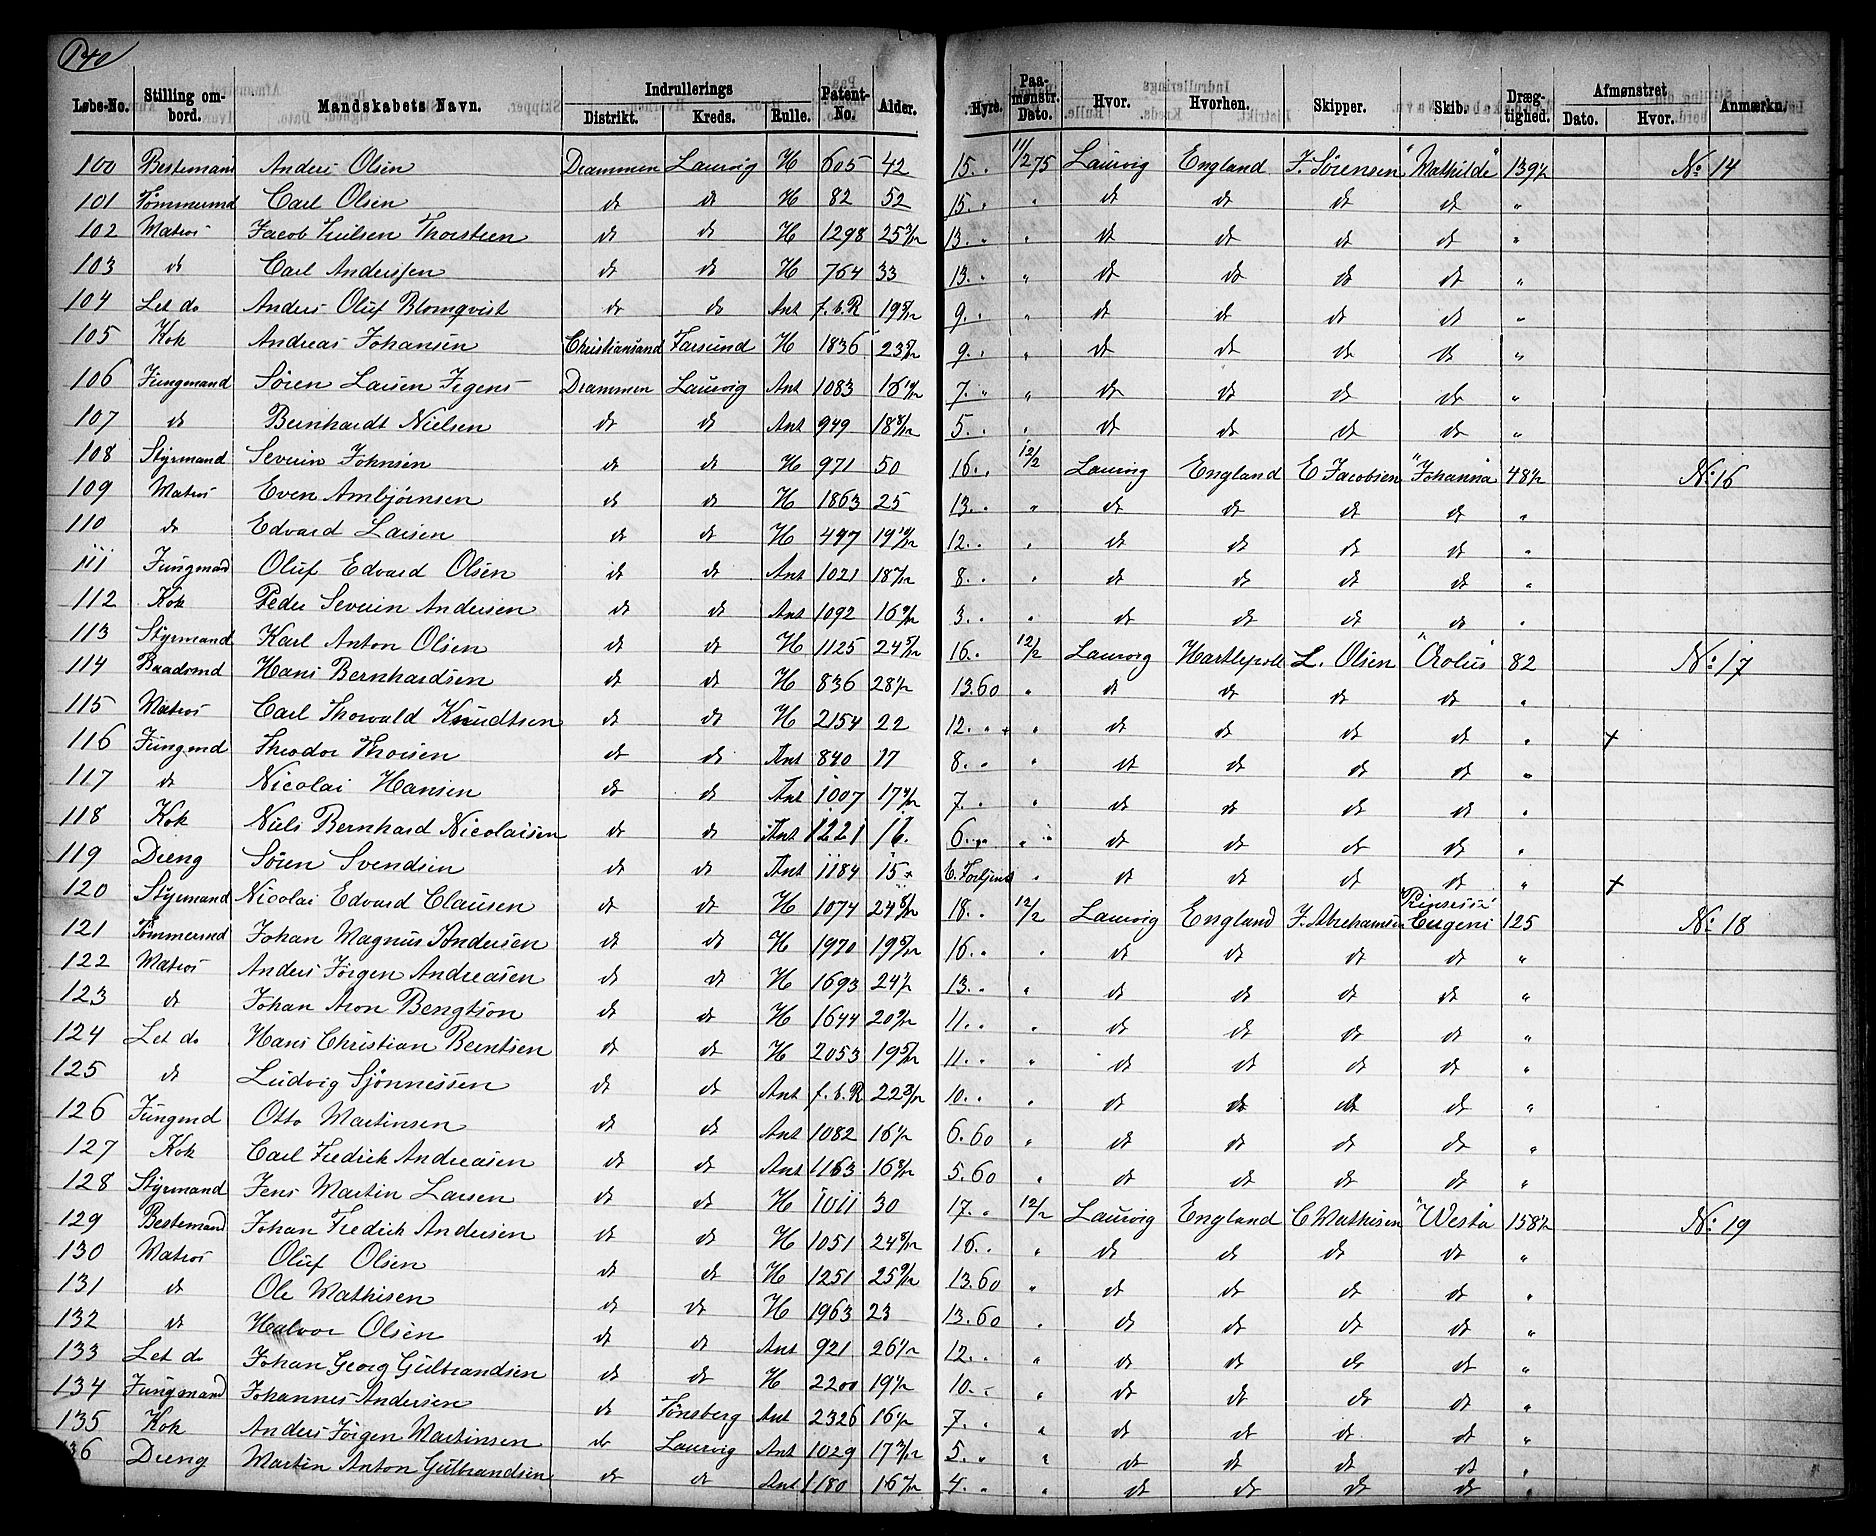 140
Løbe-No. Stilling ombord. Mandskabets Navn. Indrullerings Distrikt. Kreds. Rulle. Patent-No. Alder. Hyre. Paamønstr. Dato. Hvor. Hvorhen. Skipper. Skib. Drægtighed. Afmønstret Dato. Hvor. Anmærkn.
100 Bestemand Anders Olsen Drammen Laurvig H 605 42 15. " 11/2 75 Laurvig England J. Sørensen "Mathilde" 139½ No 14
101 Tømmermd Carl Olsen do do H 82 52 15. " " do do do do "
102 Matros Jacob Juilsen Thorstien do do H 1298 25 3/12 13. " " do do do do "
103 do Carl Andersen do do H 764 33 13. " " do do do do "
104 Let do Anders Oluf Blomqvist do do Ant f.b.R 19 9/12 9. " " do do do do "
105 Kok Andreas Johansen Christiansand Farsund H 1836 23 9. " " do do do do "
106 Jungmand Søren Larsen Irgens Drammen Laurvig Ant 1083 16 7. " " do do do do "
107 do Bernhardt Nielsen do do Ant 949 18 8/12 5. " " do do do do "
108 Styrmand Severin Johnsen do do H 971 50 16. " 12/2 Laurvig England E Jacobsen "Johanna" 48½ No 16
109 Matros Even Ambjørnsen do do H 1863 25 13. " " do do do do "
110 do Edvard Larsen do do H 497 19 10/12 12. " " do do do do "
111 Jungmand Oluf Edvard Olsen do do Ant 1021 18 7/12 8. " " do do do do "
112 Kok Peder Severin Andersen do do Ant 1092 16 9/12 3. " " do do do do "
113 Styrmand Karl Anton Olsen do do H 1125 24 5/12 16. " 12/2 Laurvig Hartlepoll L. Olsen "Æolus" 82 No 17
114 Baadsmd Hans Bernhardsen do do H 836 28½ 13.60 " do do do do "
115 Matros Carl Thorvald Knudtsen do do H 2154 22 12. " + " do do do do " +
116 Jungmd Theodor Thorsen do do Ant 840 17 8. " " do do do do "
117 do Nicolai Hansen do do Ant 1007 17 7. " " do do do do "
118 Kok Niels Bernhard Nicolaisen do do Ant 1221 16. 6. " " do do do do "
119 Dreng Søren Svendsen do do Ant 1184 15 + 6. Fortjent " do do do do " +
120 Styrmand Nicolai Edvard Clausen do do H 1074 24 8/12 18. " 12/2 Laurvig England J. Abrahamsen "Prinsesse Eugeni" 125 No 18
121 Tømmermd Johan Magnus Andersen do do H 1970 19 5/12 16. " " do do do do "
122 Matros Anders Jørgen Andreasen do do H 1693 24½ 13. " " do do do do "
123 do Johan Aron Bengtson do do H 1644 20 9/12 11. " " do do do do "
124 Let do Hans Christian Berntsen do do H 2053 19 5/12 11. " " do do do do "
125 do Ludvig Sjønnessen do do Ant f.b.R 22 3/12 10. " " do do do do "
126 Jungmd Otto Martinsen do do Ant 1082 16½ 6.60 " do do do do "
127 Kok Carl Fredrik Andreasen do do Ant 1163 16 8/12 5.60 " do do do do "
128 Styrmand Jens Martin Larsen do do H 1011 30 17. " 12/2 Laurvig England C Mathisen "Westa" 158½ No 19
129 Bestemand Johan Fredrik Andersen do do H 1051 24 8/12 16. " " do do do do "
130 Matros Oluf Olsen do do H 1251 25 9/12 13.60 " do do do do "
131 do Ole Mathisen do do H 1963 23 13.60 " do do do do "
132 do Halvor Olsen do do Ant 921 26½ 12. " " do do do do "
133 Let do Johan Georg Gulbrandsen do do H 2200 19½ 10. " " do do do do "
134 Jungmand Johannes Andersen do Tønsberg Ant 2326 16½ 7. " " do do do do "
135 Kok Anders Jørgen Martinsen do Laurvig Ant 1029 17 3/12 5. " " do do do do "
36 Dreng Martin Anton Gulbrandsen do do Ant 1180 16 7/12 4. " " do do do do "